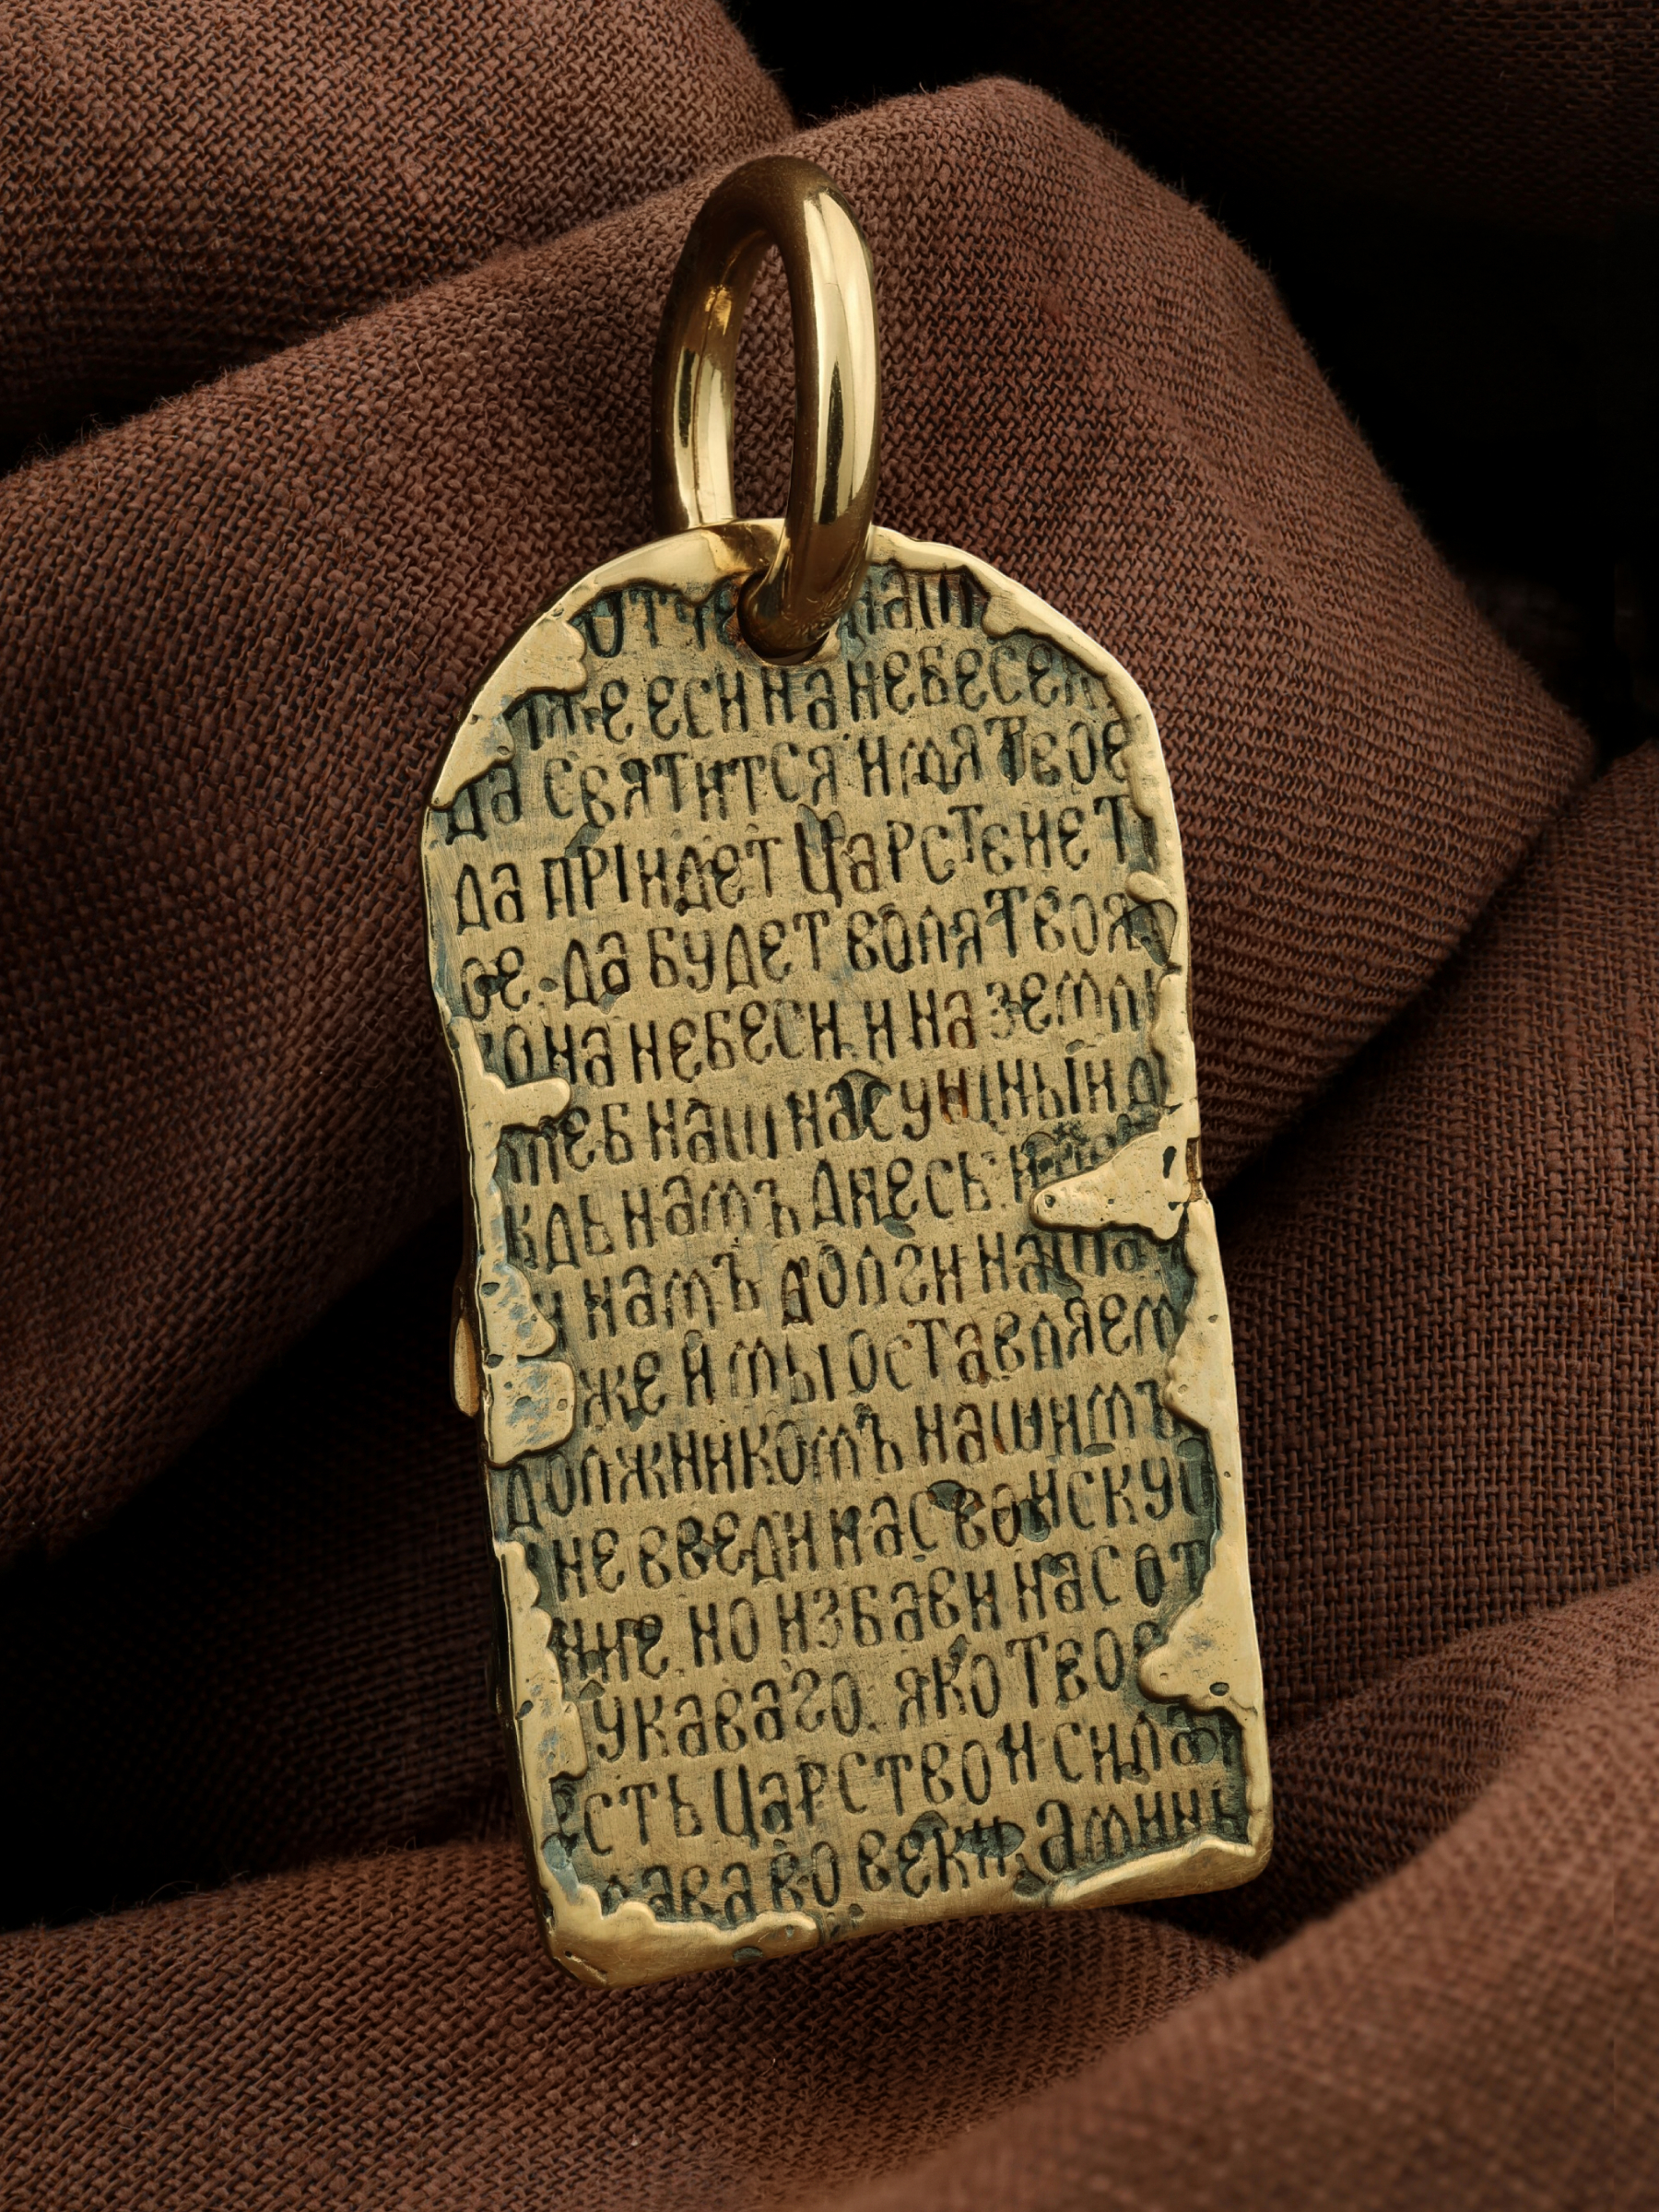 Отче наш
иже еси на небесем
да святится имя твое
да пріидет Царстение т
ое. да будет воля твоя
ко на небеси и на земли
хлеб наш насущный д
ждь намъ днесь. и
и намъ долги наша
же и мы оставляем
должникомъ нашимъ
не введи нас во искус
ние. но избави нас от
лукаваго. яко твое
есть Царство и сила и
лава во веки. аминь